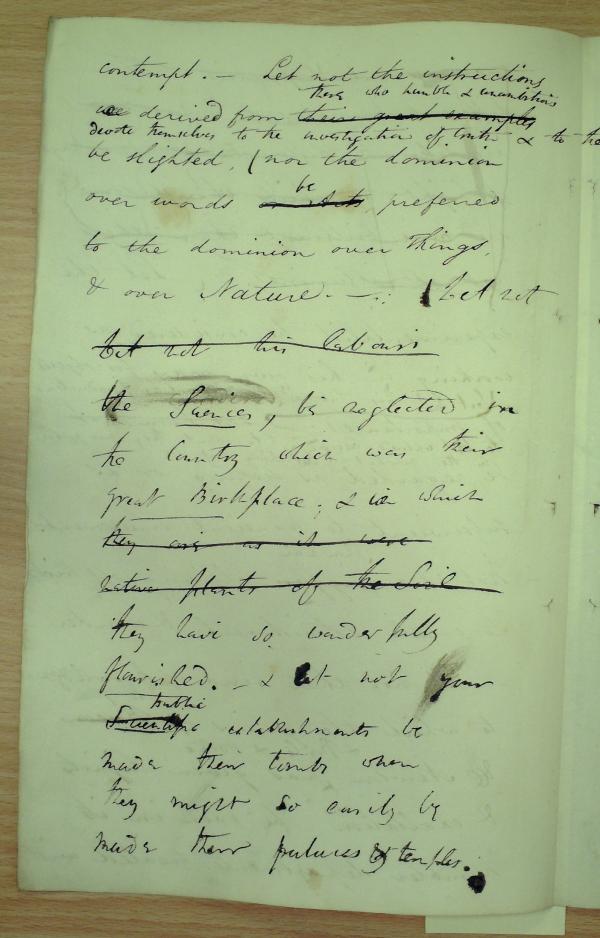 contempt. — Let not the instructions
those who humble & unambitious
we derived from their great examples
devote themselves to the investigation of truth & to the
be slighted, (nor the dominion
be
over words or Arts preferred
to the dominion over Things,
& over Nature. — : (Let not
Let not his labours
the Sciences, be neglected in
the Country which was their
great Birthplace; & in which
they are as it were
native plants of the Soil
they have so wonderfully
flourished. — & let not your
public
Scientific establishments be
made their tombs when
they might so easily be
made their palaces & temples.